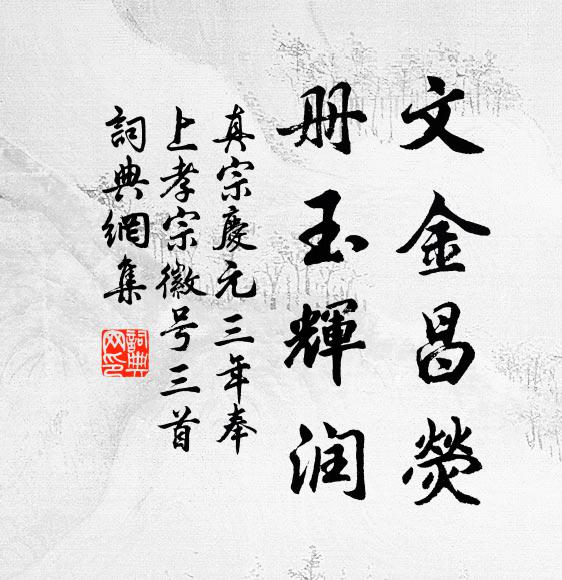 文金昌熒
册玉輝润
真宗慶元三年奉
上孝宗徽号三首
詞典網集
詞典网印